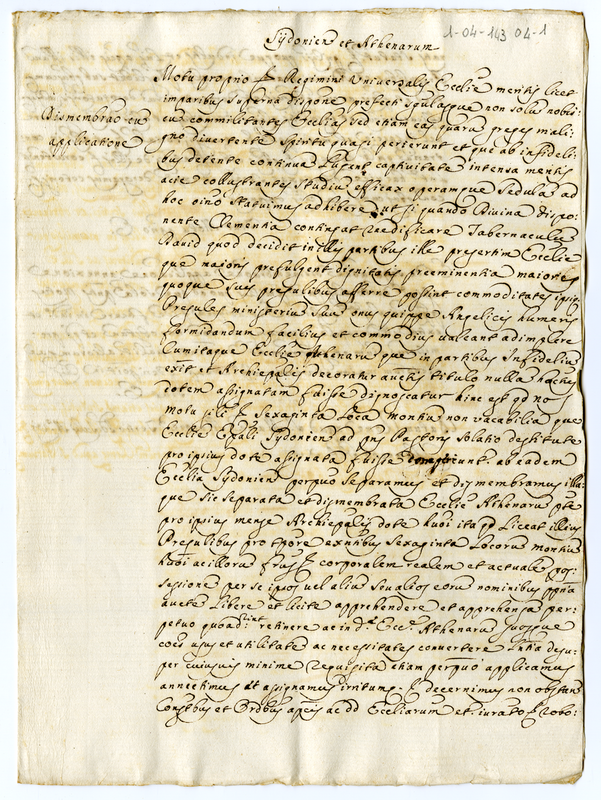 1-04-143 04-1
Sydonien et Athenarum
Dismembrao cu
applicatione
Motu proprio &c Regimini Universalis Ecclie meritis licet
imparibus superna dispone prefecti singulasque non solu nobis
cu commilitantes Ecclias sed etiam eas quaru greges mali:
gno divertente Spiritu quasi perierunt et que ab infideli:
bus detente continua lugent captivitate intensa mentis
acie collustrantes Studiu efficax operamque Sedula ad
hoc oino Statuimus adhibere ut si quando Divina dispo:
nente Clementia contingat reedificare Tabernaculu
David quod decidit in illis partibus ille presertim Ecclie
que maioris prefulgent dignitatis preeminentia maiores
quoque suis presulibus afferre possint commoditates ipsiq
Presules ministeriu suu onus quippe Angelicis humeris
formidandum facilius et commodius valeant adimplere
Cumitaque Ecclie Athenaru que in partibus Infideliu
exit et Archiepalis decoratur titulo nulla hactes
dotem assignatam fuisse dignoscatur hinc est qd nos
motu sili &c Sexaginta Loca Montiu non vacabilia que
Ecclie Epali Sydonien ad pns Pastoris Solatio destitute
pro ipsius dote assignata fuisse ab eadem
Ecclia Sydonien perpuo Separamus et dismembramus illa:
que Sic Separata et dismembrata Ecclie Athenaru pte
pro ipsius mense Archiepalis dote huoi ita qd Liceat illius
Presulibus pro tpore exntibus Sexaginta Locoru montiu
huoi ac illoru frus &c corporalem realem et actuale pos:
sessione per se ipsos vel aliu Seu alios eoru nominibus ppria
aucte Libere et licite apprehendere et apprehensa per:
petuo quoad vixint retinere ac in d. Eccl. Athenaru suosque
coes usus et utilitate ac necessitates convertere Lntia desu:
per cuiusvis minime requisita etiam perpuo applicamus
annectimus et assignamus irritumq. &c decernimus non obstan
Constbus et Ordbus aplcis ac dd Eccliarum et. iurato &c robo: